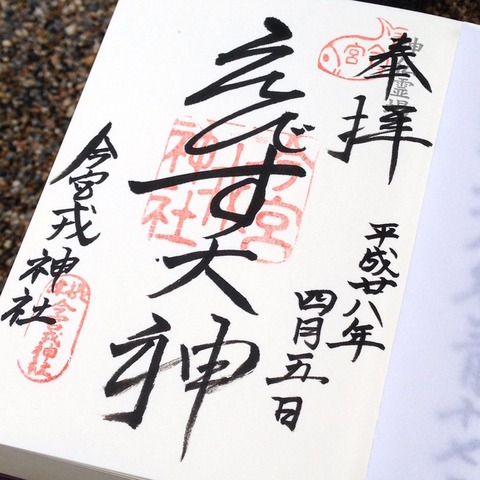 奉拝
平成廿八年
四月五日
えびす大神
今宮戎神社
今宮
神社
今宮戎神社